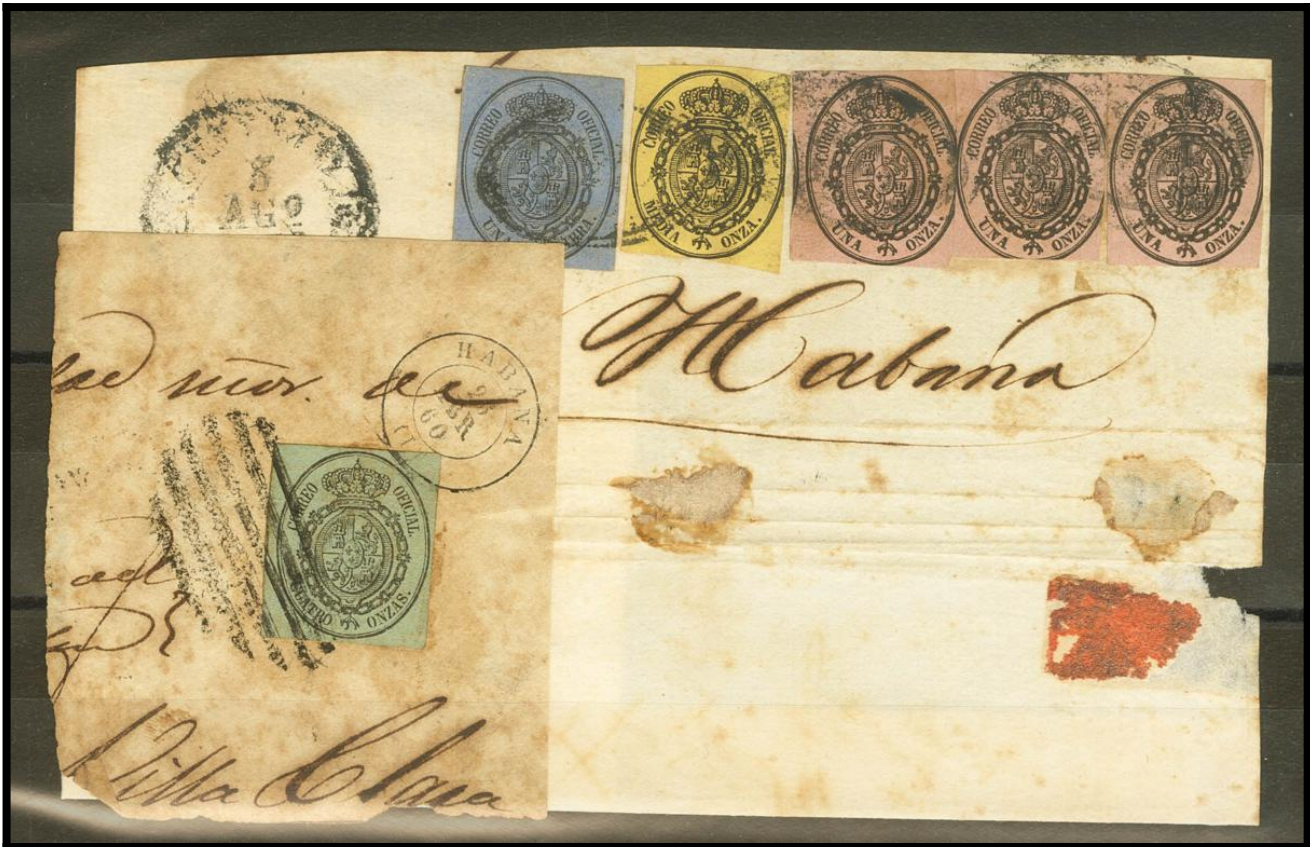 5
AGº
CORREO OFICIAL.
UNA LIBRA.
CORREO OFICIAL
MEDIA ONZA.
CORREO OFICIAL
UNA ONZA.
CORREO OFICIAL
UNA ONZA.
CORREO OFICIAL
UNA ONZA.
Habana
de
HABANA
60
CORREO OFICIAL
CUATRO ONZAS.
Villa Clara